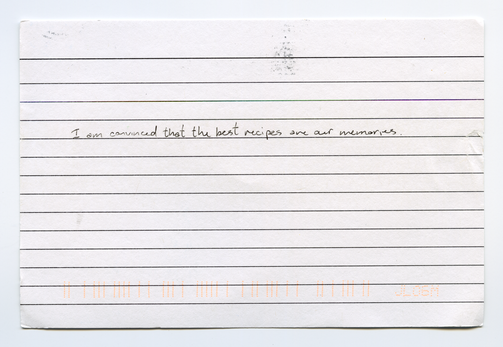 I am convinced that the best recipes are our memories.